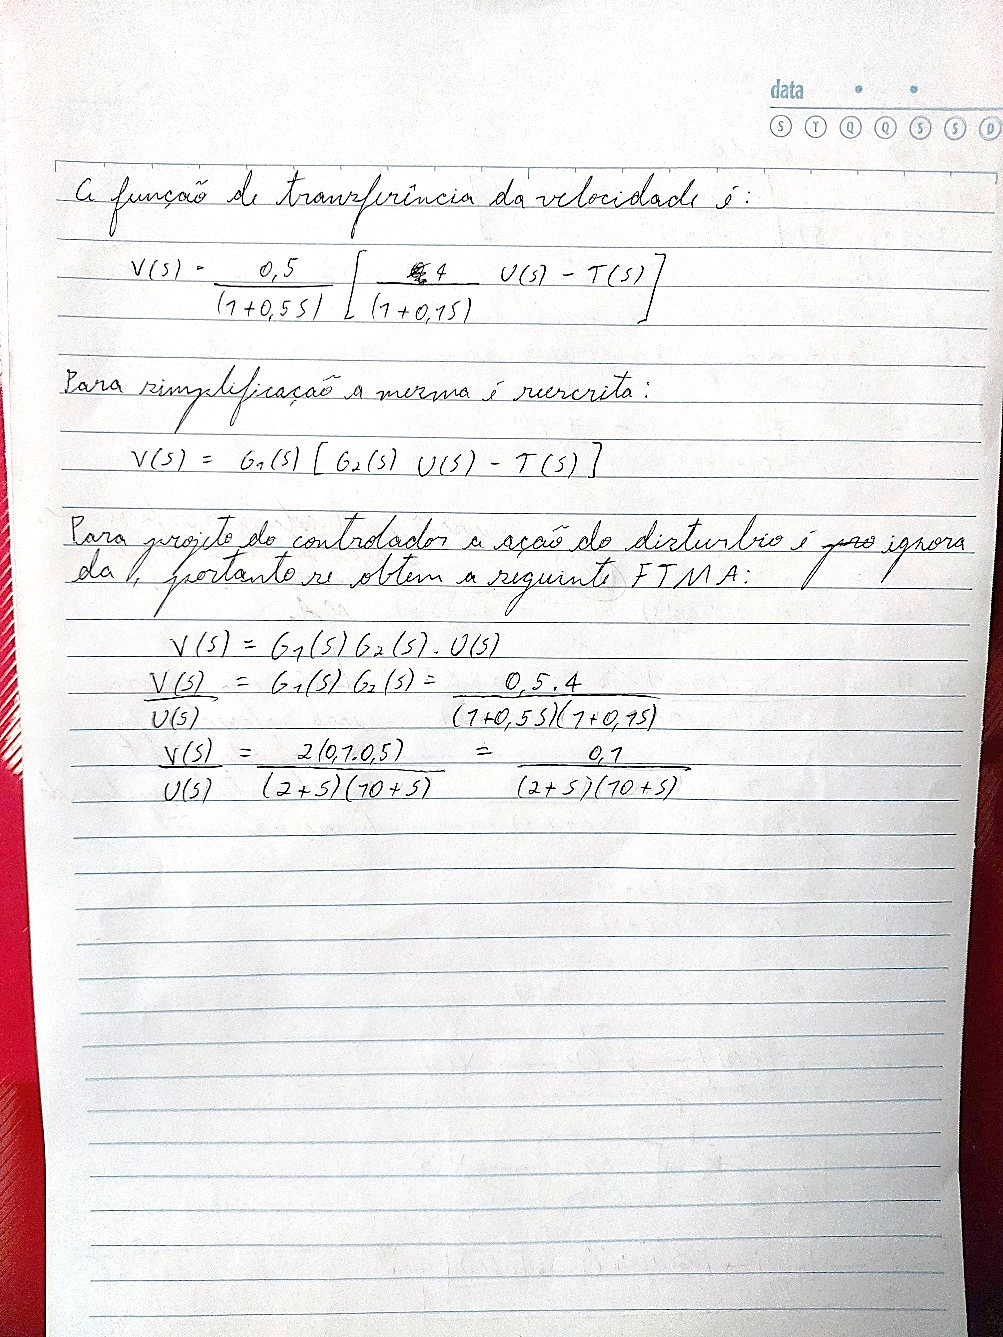 data
S T Q Q S S D
A função de transferência da velocidade é:
V(s) = 0,5 / (1+0,5s) [ 4 / (1+0,1s) U(s) - T(s) ]
Para simplificação a mesma é reescrita:
V(s) = G1(s) [ G2(s) U(s) - T(s) ]
Para projeto do controlador a ação do disturbio é pro ignora
da, portanto se obtem a seguinte FTMA:
V(s) = G1(s) G2(s) . U(s)
V(s) / U(s) = G1(s) G2(s) = 0,5.4 / (1+0,5s)(1+0,1s)
V(s) / U(s) = 2(0,1.0,5) / (2+s)(10+s) = 0,1 / (2+s)(10+s)